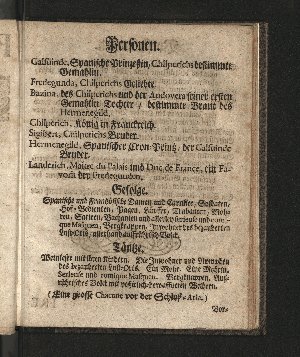 Personen.
Galsuinde, Spanische Prinzeßin, Chilperichs bestimmte
Gemahlin.
Fredegunda, Chilperichs Geliebte.
Bazina, des Chilperichs und der Andovera seiner ersten
Gemahlin Tochter, bestimmte Braut des
Hermenegild.
Chilperich, König in Franckreich.
Sigibert, Chilperichs Bruder.
Hermenegild, Spanischer Cron-Printz, der Galsuinde
Bruder.
Landerich, Maitre du Palais und Duc de France, ein Fa-
vorit der Fredegunden.
Gefolge.
Spanische und Frantzösische Damen und Cavaliers, Soldaten,
Hof-Bediente, Pagen, Läuffer, Trabanten, Moh-
ren, Satiren, Bacchanten und allerley serieuse und comi-
que Masquen, Bergknappen, Inwohner des bezauberten
Lust-Orts, allerhand Volck.
Täntze.
Weinlese mit ihren Kindern. Die Inwohner und
des bezauberten Lust-Orts. Ein Mohr. Eine Mohrin.
Serieuse und comique Masquen. Bergknappen.
Volck mit
(Eine grosse Chaconne vor der Schluß-Aria.)
Vor-